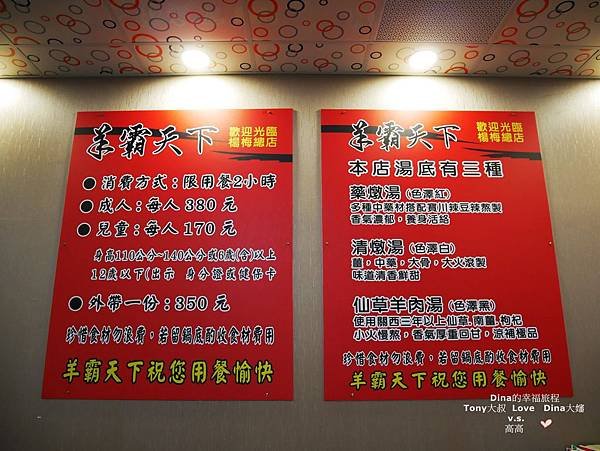 羊霸天下
歡迎光臨
楊梅總店
● 消費方式：限用餐2小時
● 成人：每人 380 元
● 兒童：每人 170 元
身高110公分~140公分或6歲(含)以上
12歲以下(出示 身分證或健保卡
● 外帶一份：350 元
珍惜食材勿浪費，若留鍋底酌收食材費用
羊霸天下祝您用餐愉快
羊霸天下
歡迎光臨
楊梅總店
本店湯底有三種
藥燉湯（色澤紅）
多種中藥材搭配寶川辣豆辣熬製
香氣濃郁，養身活絡
清燉湯（色澤白）
薑，中藥，大骨，大火滾製
味道清香鮮甜
仙草羊肉湯（色澤黑）
使用關西三年以上仙草.南薑.枸杞
小火慢熬，香氣厚重回甘，涼補極品
珍惜食材勿浪費，若留鍋底酌收食材費用
羊霸天下祝您用餐愉快
Dina的幸福旅程
Tony大叔 Love Dina大嬸
v.s.
高高